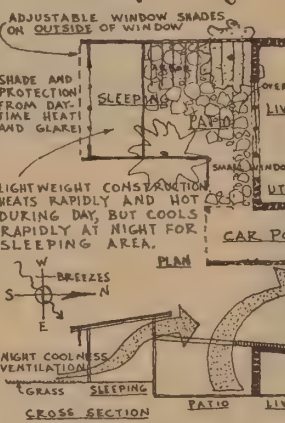 ADJUSTABLE WINDOW SHADES
ON OUTSIDE OF WINDOW
SHADE AND
PROTECTION
FROM DAY-
TIME HEAT
AND GLARE
SLEEPING
PATIO
OVER
LIV
SMALL WINDOW
UT
LIGHTWEIGHT CONSTRUCTION
HEATS RAPIDLY AND HOT
DURING DAY, BUT COOLS
RAPIDLY AT NIGHT FOR
SLEEPING AREA.
CAR PO
PLAN
W
BREEZES
S
N
E
NIGHT COOLNESS
VENTILATION
GRASS
SLEEPING
PATIO
LIV
CROSS SECTION